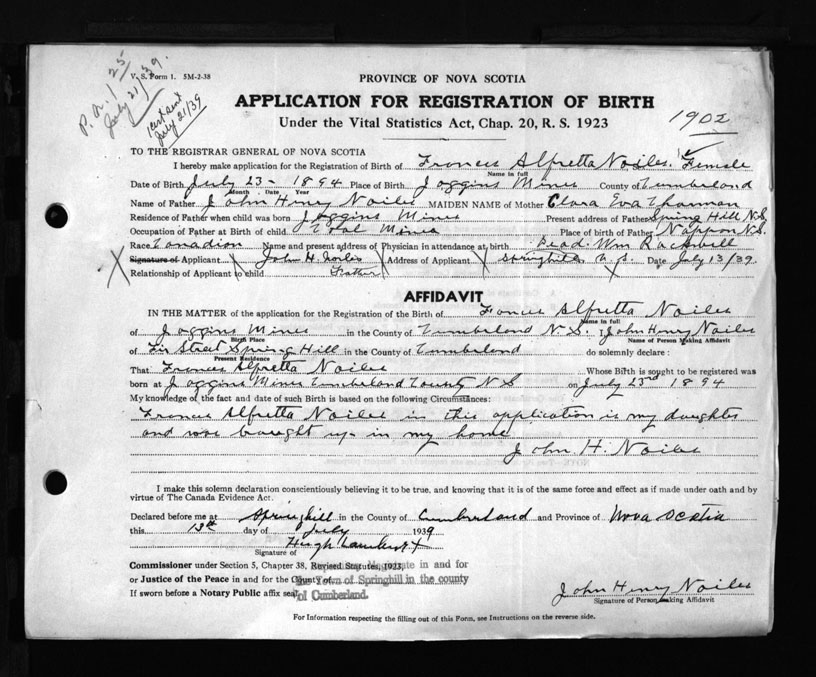 V. S. Form 1. 5M-2-38
P. a. 1 25
July 21/39.
July 21/39
PROVINCE OF NOVA SCOTIA
APPLICATION FOR REGISTRATION OF BIRTH
Under the Vital Statistics Act, Chap. 20, R. S. 1923
1902
TO THE REGISTRAR GENERAL OF NOVA SCOTIA
I hereby make application for the Registration of Birth of Frances Alfretta Noiles. Female
Name in full
Date of Birth July 23 - 1894 Place of Birth Joggins Mines County of Cumberland
Month - Date - Year
Name of Father John Henry Noiles MAIDEN NAME of Mother Clara Eva
Residence of Father when child was born Joggins Mines Present address of Father Spring Hill N.S.
Occupation of Father at Birth of child Coal Miner Place of birth of Father Nappan N.S.
Race Canadian Name and present address of Physician in attendance at birth Dead. Wm Rockwell
Signature of Applicant John H. Noiles Address of Applicant Springhill N.S. Date July 13/39.
Relationship of Applicant to child Father
AFFIDAVIT
IN THE MATTER of the application for the Registration of the Birth of Frances Alfretta Noiles
Name in full
of Joggins Mines in the County of Cumberland N.S. I John Henry Noiles
Birth Place Name of Person Making Affidavit
of Fir Street Spring Hill in the County of Cumberland do solemnly declare:
Present Residence
That Frances Alfretta Noiles Whose Birth is sought to be registered was
born at Joggins Mines Cumberland County N.S on July 23rd 1894
My knowledge of the fact and date of such Birth is based on the following Circumstances:
Frances Alfretta Noiles in this application is my daughter
and was braught up in my home
John H. Noiles
I make this solemn declaration conscientiously believing it to be true, and knowing that it is of the same force and effect as if made under oath and by
virtue of The Canada Evidence Act.
Declared before me at Springhill in the County of Cumberland and Province of Nova Scotia
this 13th day of July 1939
Signature of
Commissioner under Section 5, Chapter 38, Revised Statutes, 1923, in and for
or Justice of the Peace in and for the County of Town of Springhill in the county
If sworn before a Notary Public affix seal of Cumberland.
John Henry Noiles
Signature of Person making Affidavit
For Information respecting the filling out of this Form, see Instructions on the reverse side.